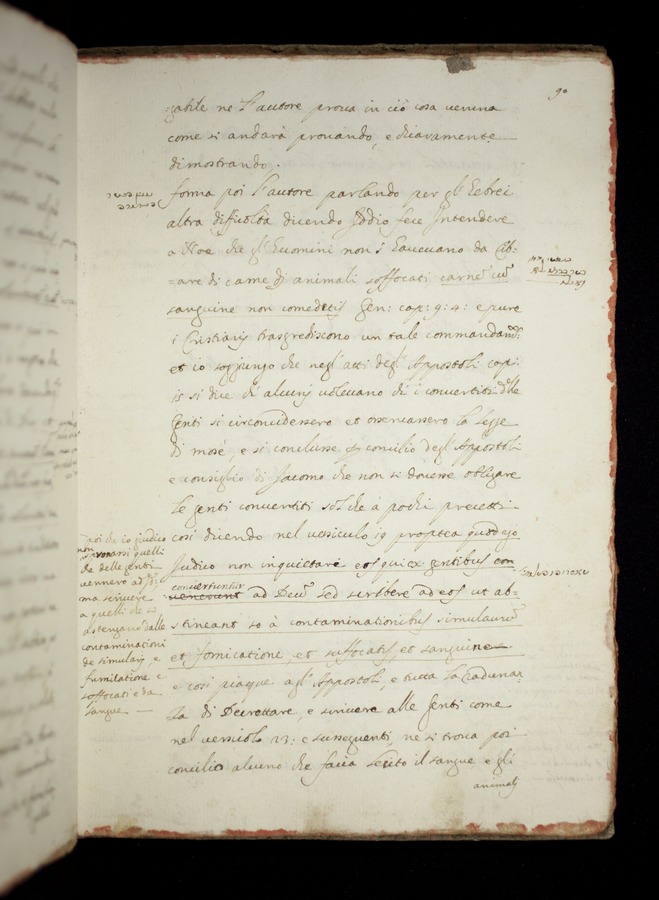 90
gabile ne l'autore prova in ciò cosa veruna
come si andarà provando, e chiavamente
dimostrando.
forma poi l'autore parlando per gl'Eebrei
altra dificoltà dicendo Iddio fece Intendere
a Noe che gl'Euomini non s'Eavevano da Cib:
=are di carne di animali soffocati carnē cū
sanguine non comedetis Gen: cap: 9: 4: e pure
i Cristianij trasgrediscono un tale commandamto:
et io soggiungo che negl'atti degl'Appostoli cap:
15 si dice ch'alcunij volevano ch'i convertiti dlle
genti si circoncidessero et osservassero la legge
di mosè, e si concluse in concilio degl'Appostoli
e consiglio di Jacomo che non si dovesse obligare
le genti convertiti sol che à pochi precetti
cosi dicendo nel versiculo 19 proptea quod ego
Judico non inquietare eos qui ex gentibus con
convertuntur
venerunt ad Deū sed scribere ad eos ut ab=
stineant se à contaminationibus simulacrū
et fornicatione, et suffocatis, et sanguine
e cosi piacque agl'Appostoli, e tutta la radunan
za di Decrettare, e scrivere alle genti come
nel versicolo 23: e susseguenti, ne si trova poi
concilio alcuno che facia lecito il sangue e gli
animalj
poi che io giudico
non
quelli
che delle genti
vennero ad
ma scrivere
a quelli che si
astengano dalle
contaminationi
de simulacri, e
fornicatione e
soffocati e da
sangue